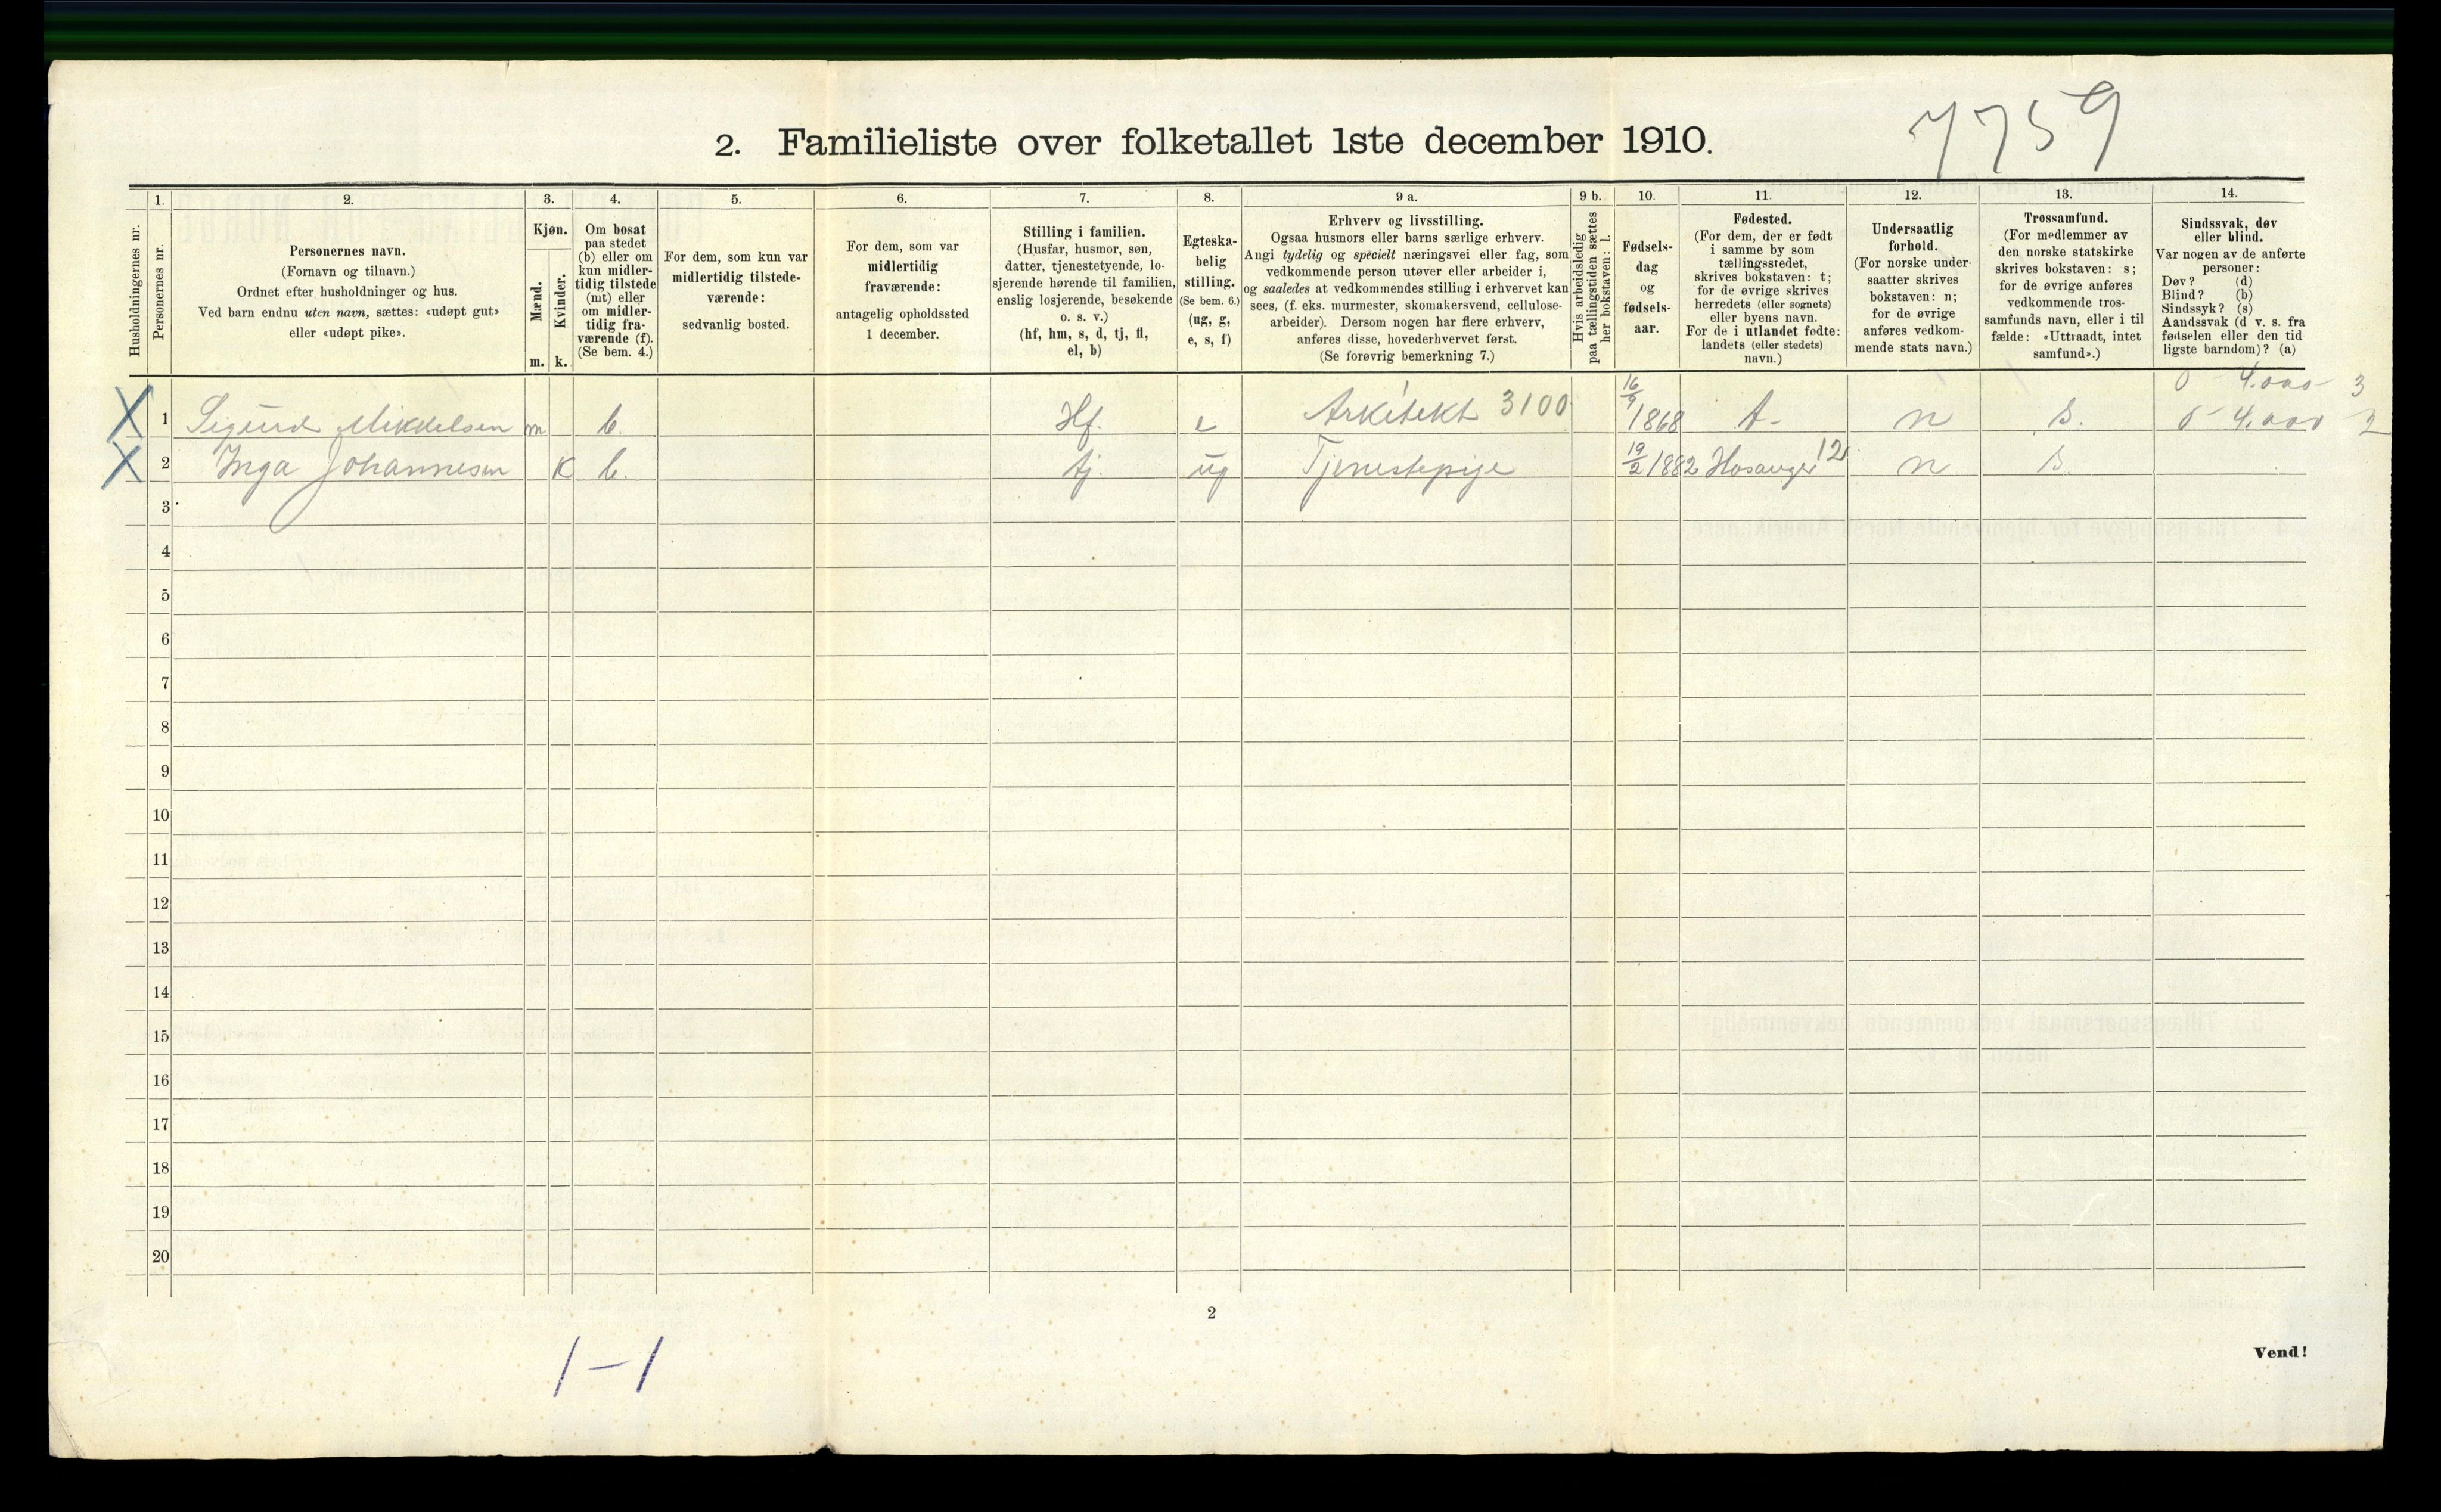 7759
2. Familieliste over folketallet 1ste december 1910.
1. 2. 3. 4. 5. 6. 7. 8. 9 a. 9 b. 10. 11. 12. 13. 14.
Husholdningernes nr.
Personernes nr.
Personernes navn.
(Fornavn og tilnavn.)
Ordnet efter husholdninger og hus.
Ved barn endnu uten navn, sættes: «udøpt gut»
eller «udøpt pike».
Kjøn.
Mænd.
m.
Kvinder.
k.
Om bosat
paa stedet
(b) eller om
kun midler-
tidig tilstede
(mt) eller
om midler-
tidig fra-
værende (f).
(Se bem. 4.)
For dem, som kun var
midlertidig tilstede-
værende:
sedvanlig bosted.
For dem, som var
midlertidig
fraværende:
antagelig opholdssted
1 december.
Stilling i familien.
(Husfar, husmor, søn,
datter, tjenestetyende, lo-
sjerende hørende til familien,
enslig losjerende, besøkende
o. s. v.)
(hf, hm, s, d, tj, fl,
el, b)
Egteska-
belig
stilling.
(Se bem. 6.)
(ug, g,
e, s, f)
Erhverv og livsstilling.
Ogsaa husmors eller barns særlige erhverv.
Angi tydelig og specielt næringsvei eller fag, som
vedkommende person utøver eller arbeider i,
og saaledes at vedkommendes stilling i erhvervet kan
sees, (f. eks. murmester, skomakersvend, cellulose-
arbeider). Dersom nogen har flere erhverv,
anføres disse, hovederhvervet først.
(Se forøvrig bemerkning 7.)
Hvis arbeidsledig
paa tællingstiden sættes
her bokstaven: l.
Fødsels-
dag
og
fødsels-
aar.
Fødested.
(For dem, der er født
i samme by som
tællingsstedet,
skrives bokstaven: t;
for de øvrige skrives
herredets (eller sognets)
eller byens navn.
For de i utlandet fødte:
landets (eller stedets)
navn.)
Undersaatlig
forhold.
(For norske under-
saatter skrives
bokstaven: n;
for de øvrige
anføres vedkom-
mende stats navn.)
Trossamfund.
(For medlemmer av
den norske statskirke
skrives bokstaven: s;
for de øvrige anføres
vedkommende tros-
samfunds navn, eller i til
fælde: «Uttraadt, intet
samfund».)
Sindssvak, døv
eller blind.
Var nogen av de anførte
personer:
Døv? (d)
Blind? (b)
Sindssyk? (s)
Aandssvak (d v. s. fra
fødselen eller den tid
ligste barndom)? (a)
0 4.000 3
X 1 Sigurd Mikkelsen m b. Hf. e Arkitekt 3100 16/9 1868 t- n s. 0 4.000 2
X 2 Inga Johannesen K b. tj. ug Tjenestepige 19/2 1882 Hosanger 12 n s.
3
4
5
6
7
8
9
10
11
12
13
14
15
16
17
18
19
20
2
1-1
Vend!